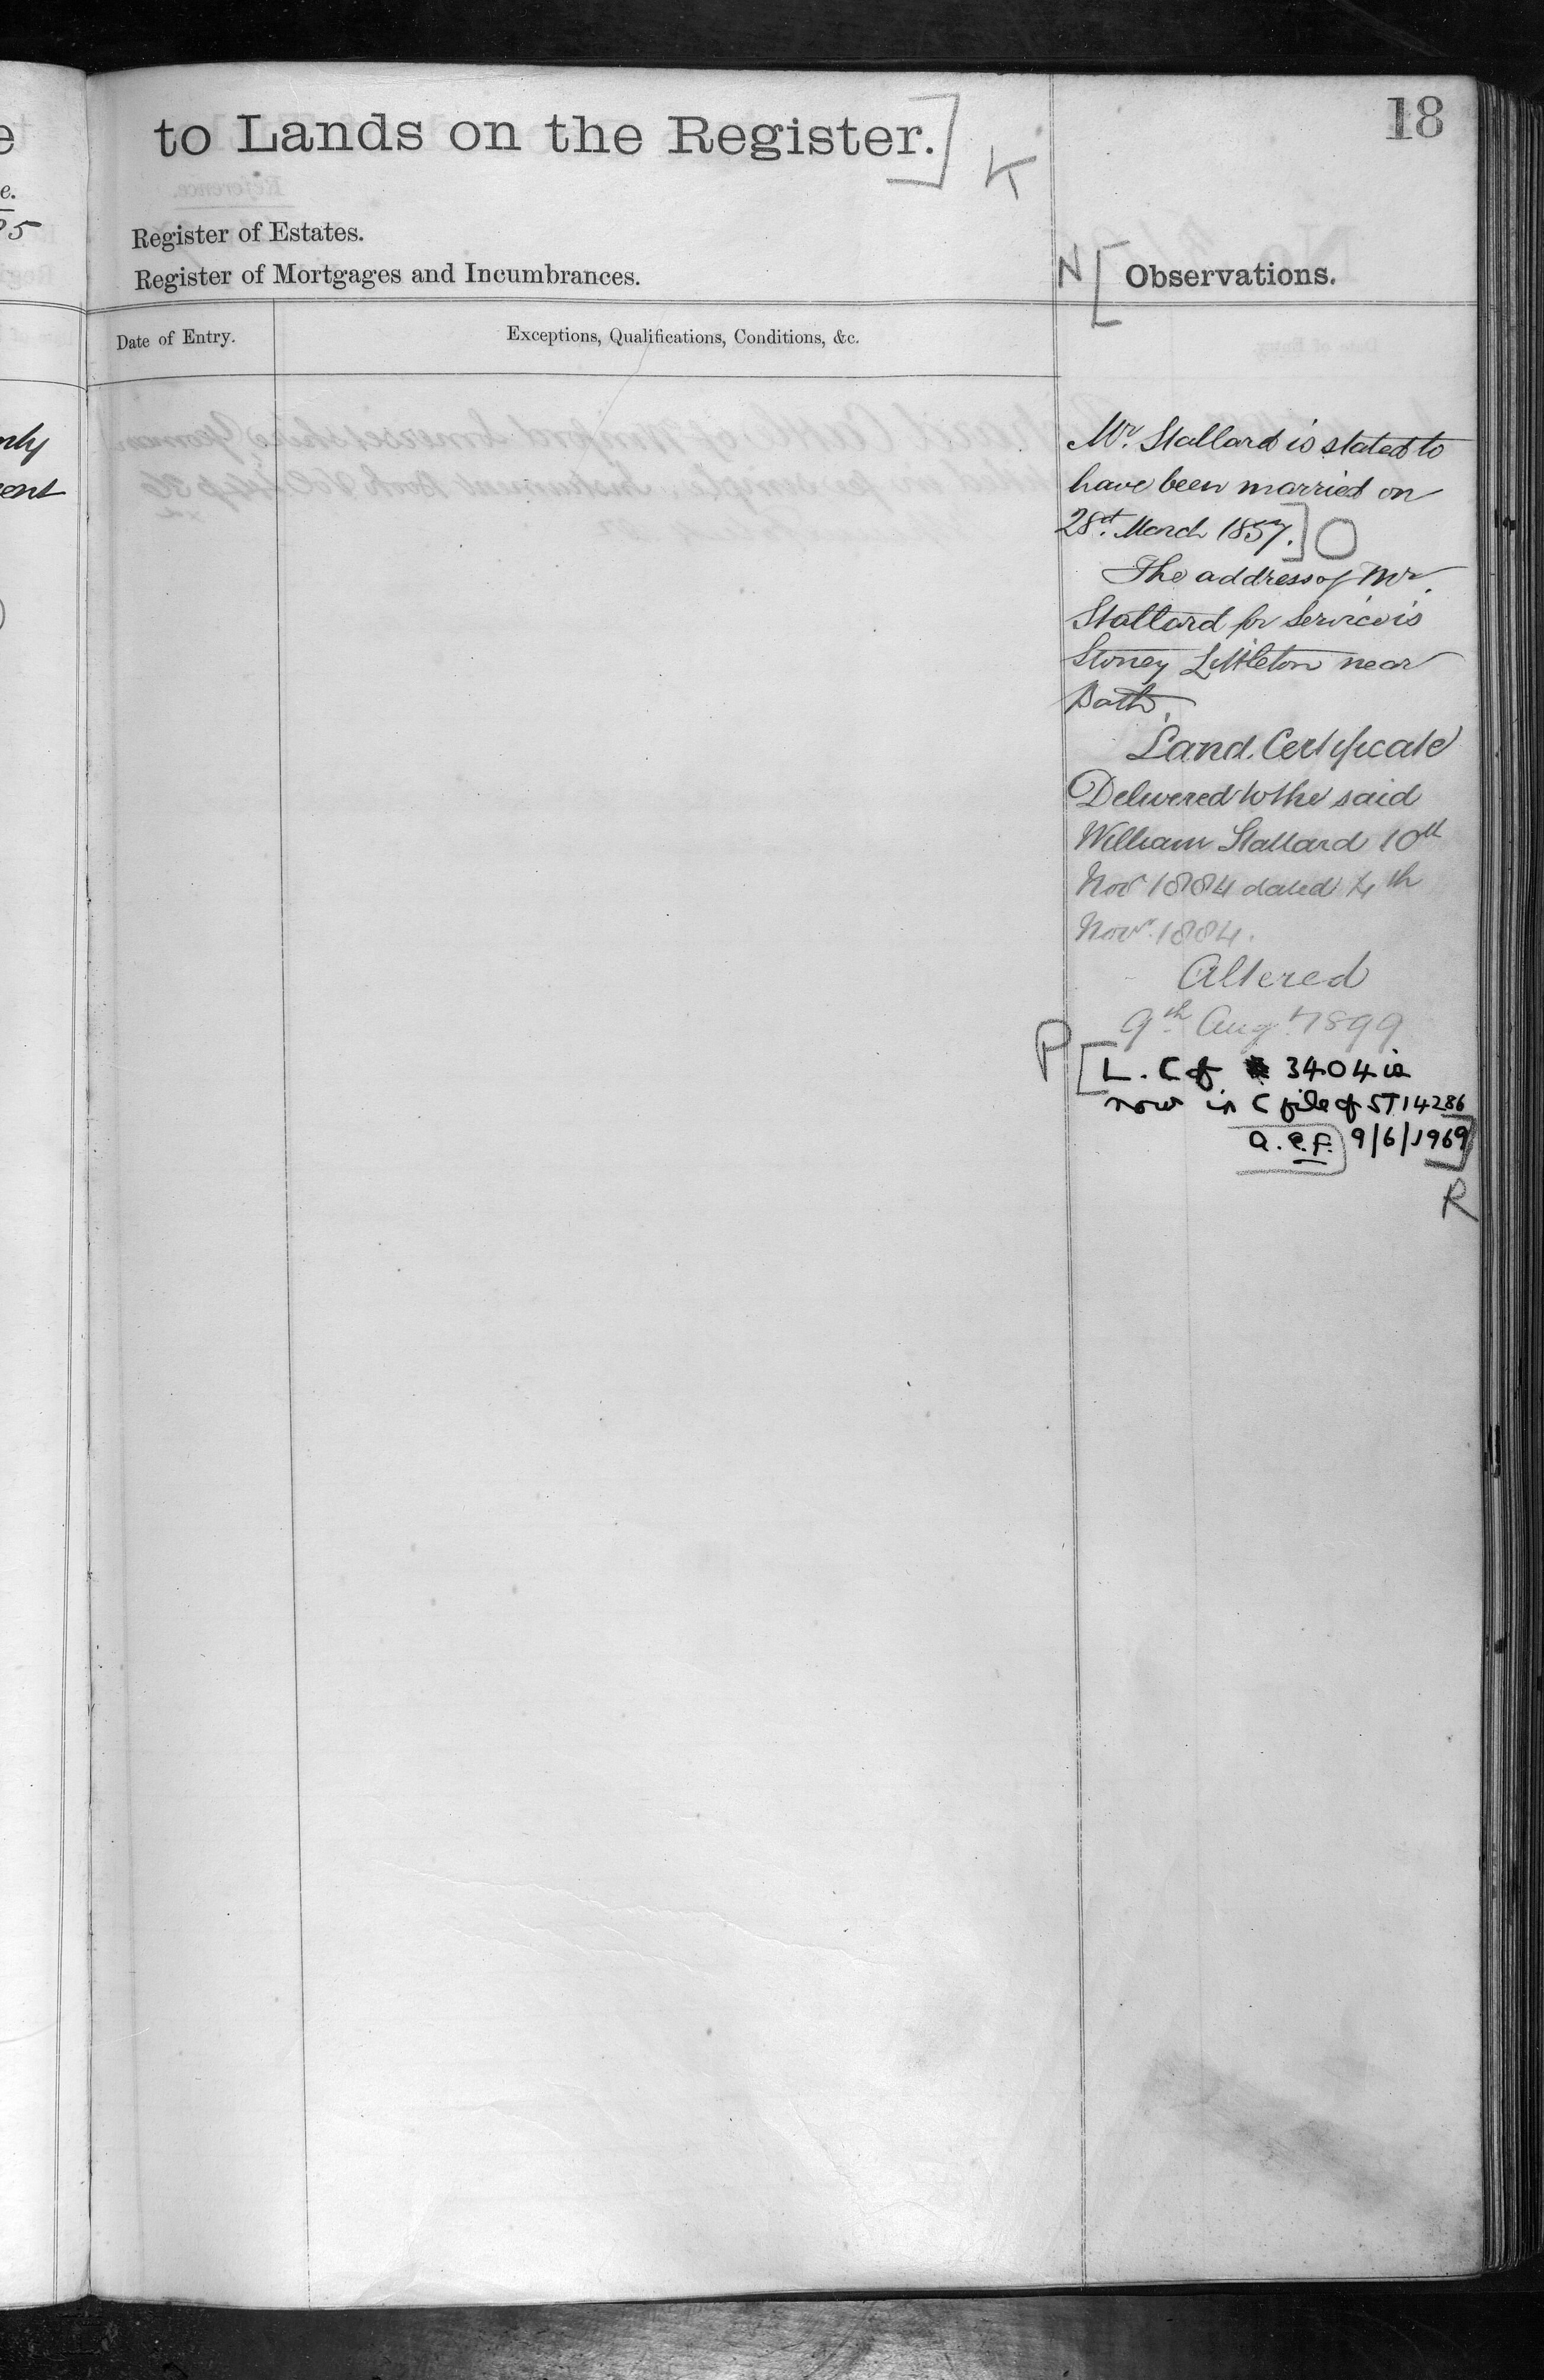 18
to Lands on the Register.] K
Register of Estates.
Register of Mortgages and Incumbrances.
N [ Observations.
Date of Entry.
Exceptions, Qualifications, Conditions, &c.
Mr. Stallard is stated to
have been married on
28th. March 1857.] O
The address of Mr.
Stallard for Service is
Stoney Littleton near
Bath.
Land Certificate
Delivered to the said
William Stallard 10th
Novr 1884 dated 4th
Novr. 1884.
Altered
9th Augt. 1899
P [L. C of 3404 is
now in C file of ST14286
a.e.f. 9/6/1969]
R
e
e.
95
nly
ent